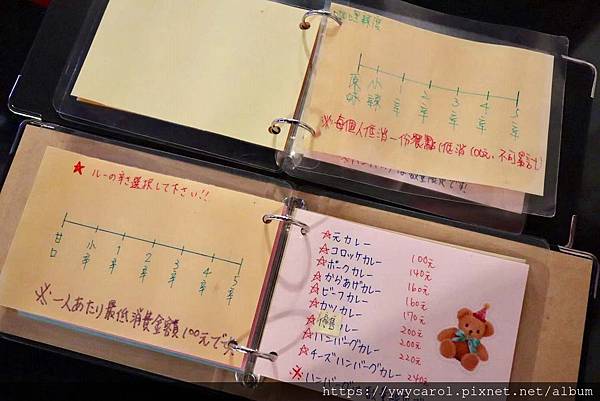 原味 小辣 1辛 2辛 3辛 4辛 5辛
※每個人低消一份餐點(低消100元,不可累計)
★ルーの辛さ選択して下さい!!
甘口 小辛 1辛 2辛 3辛 4辛 5辛
※一人あたり最低消費金額100元で
☆元カレー 100元
☆コロッケカレー 140元
☆ポークカレー 160元
☆からあげカレー 160元
☆ビーフカレー 170元
☆カツカレー 200元
☆ カレー 200元
☆ハンバーグカレー 220元
☆チーズハンバーグカレー 240元
※ハンバーグ
https://ywycarol.pixnet.net/album